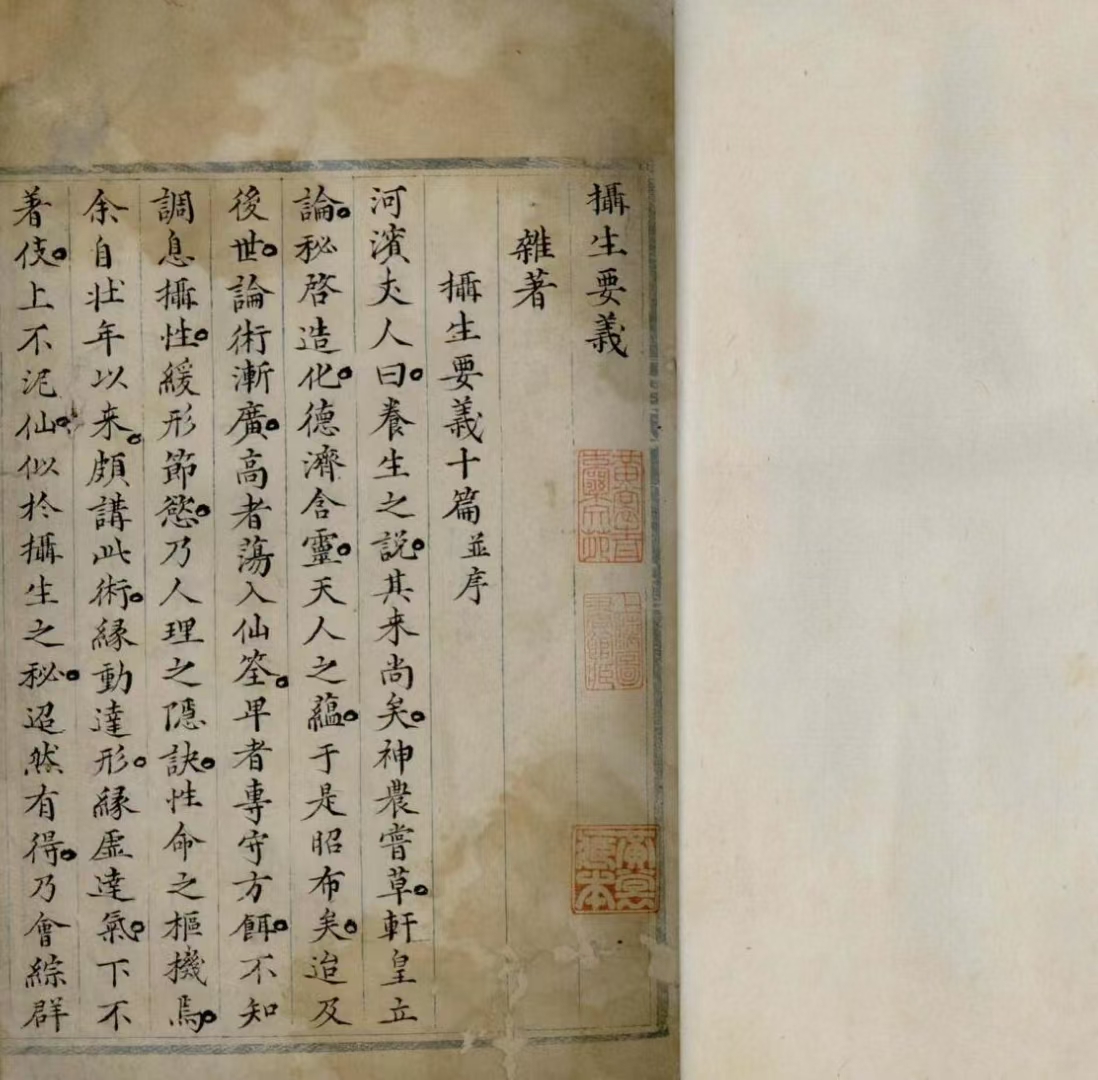 攝生要義
黃裳青囊文苑
上海圖書館藏
黃裳藏本
雜著
攝生要義十篇並序
河濱丈人曰。養生之説。其来尚矣。神農嘗草。軒皇立
論。秘啓造化。德濟含靈。天人之蘊。于是昭布矣。迨及
後世。論術漸廣。高者蕩入仙筌。卑者專守方餌。不知
調息攝性。緩形節慾。乃人理之隱訣。性命之樞機焉。
余自壯年以来。頗講此術。緣動達形。緣虛達氣。下不
著伎。上不泥仙。似於攝生之秘。迢然有得。乃會綜群